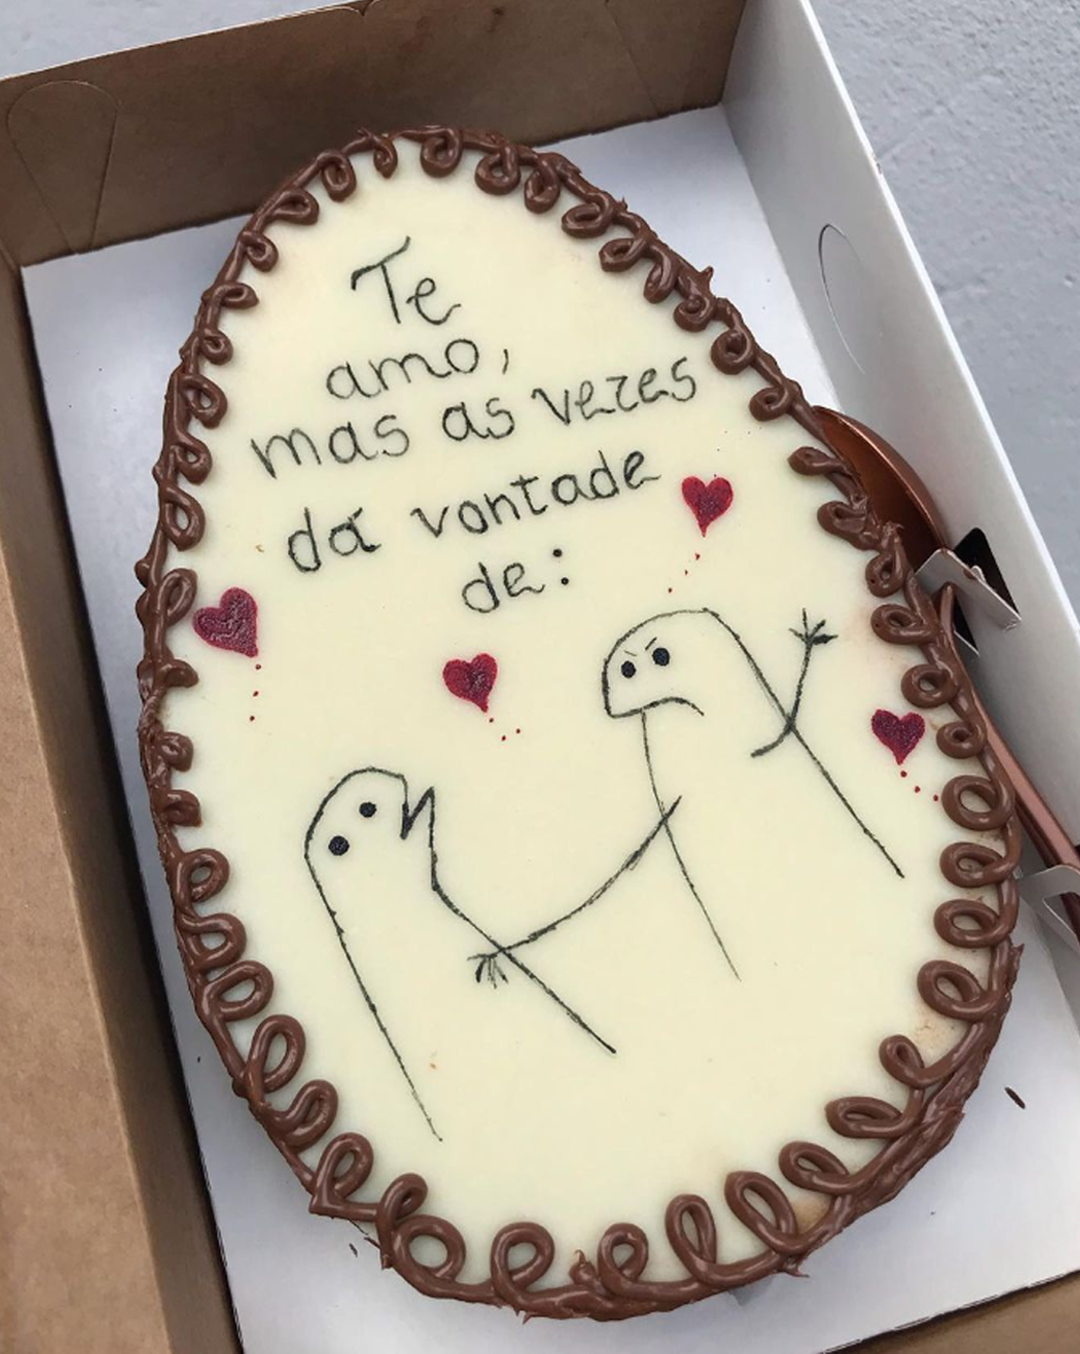 Te
amo,
mas as vezes
dá vontade
de: